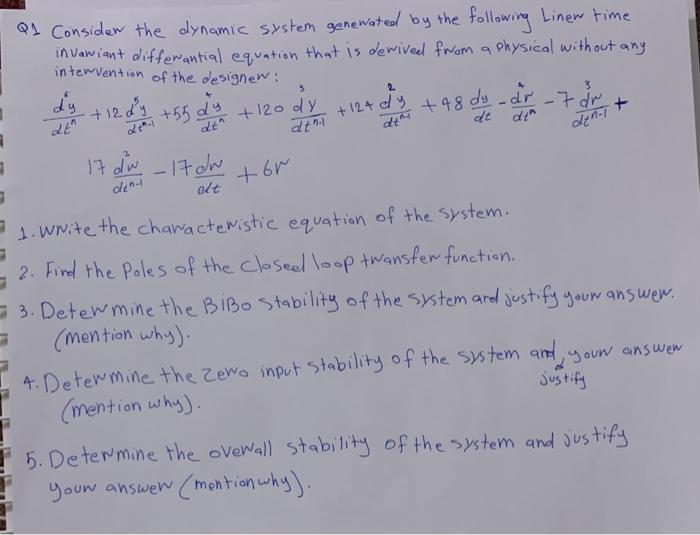 Q1 Consider the dynamic system generated by the following Linear time
invariant differantial equation that is derived from a physical without any
intervention of the designer:
d⁶y/dtⁿ + 12 d⁵y/dtⁿ⁻¹ + 55 d⁴y/dtⁿ + 120 d³y/dtⁿ⁻¹ + 124 d²y/dtⁿ⁻¹ + 48 dy/dt - d⁴r/dtⁿ - 7 d³r/dtⁿ⁻¹ +
17 d²r/dtⁿ⁻¹ - 17 dr/dt + 6r
1. Write the characteristic equation of the system.
2. Find the Poles of the Closed loop transfer function.
3. Determine the BiBo stability of the system and justify your answer.
(mention why).
4. Determine the Zero input stability of the system and justify your answer
(mention why).
5. Determine the overall stability of the system and justify
your answer (mention why).